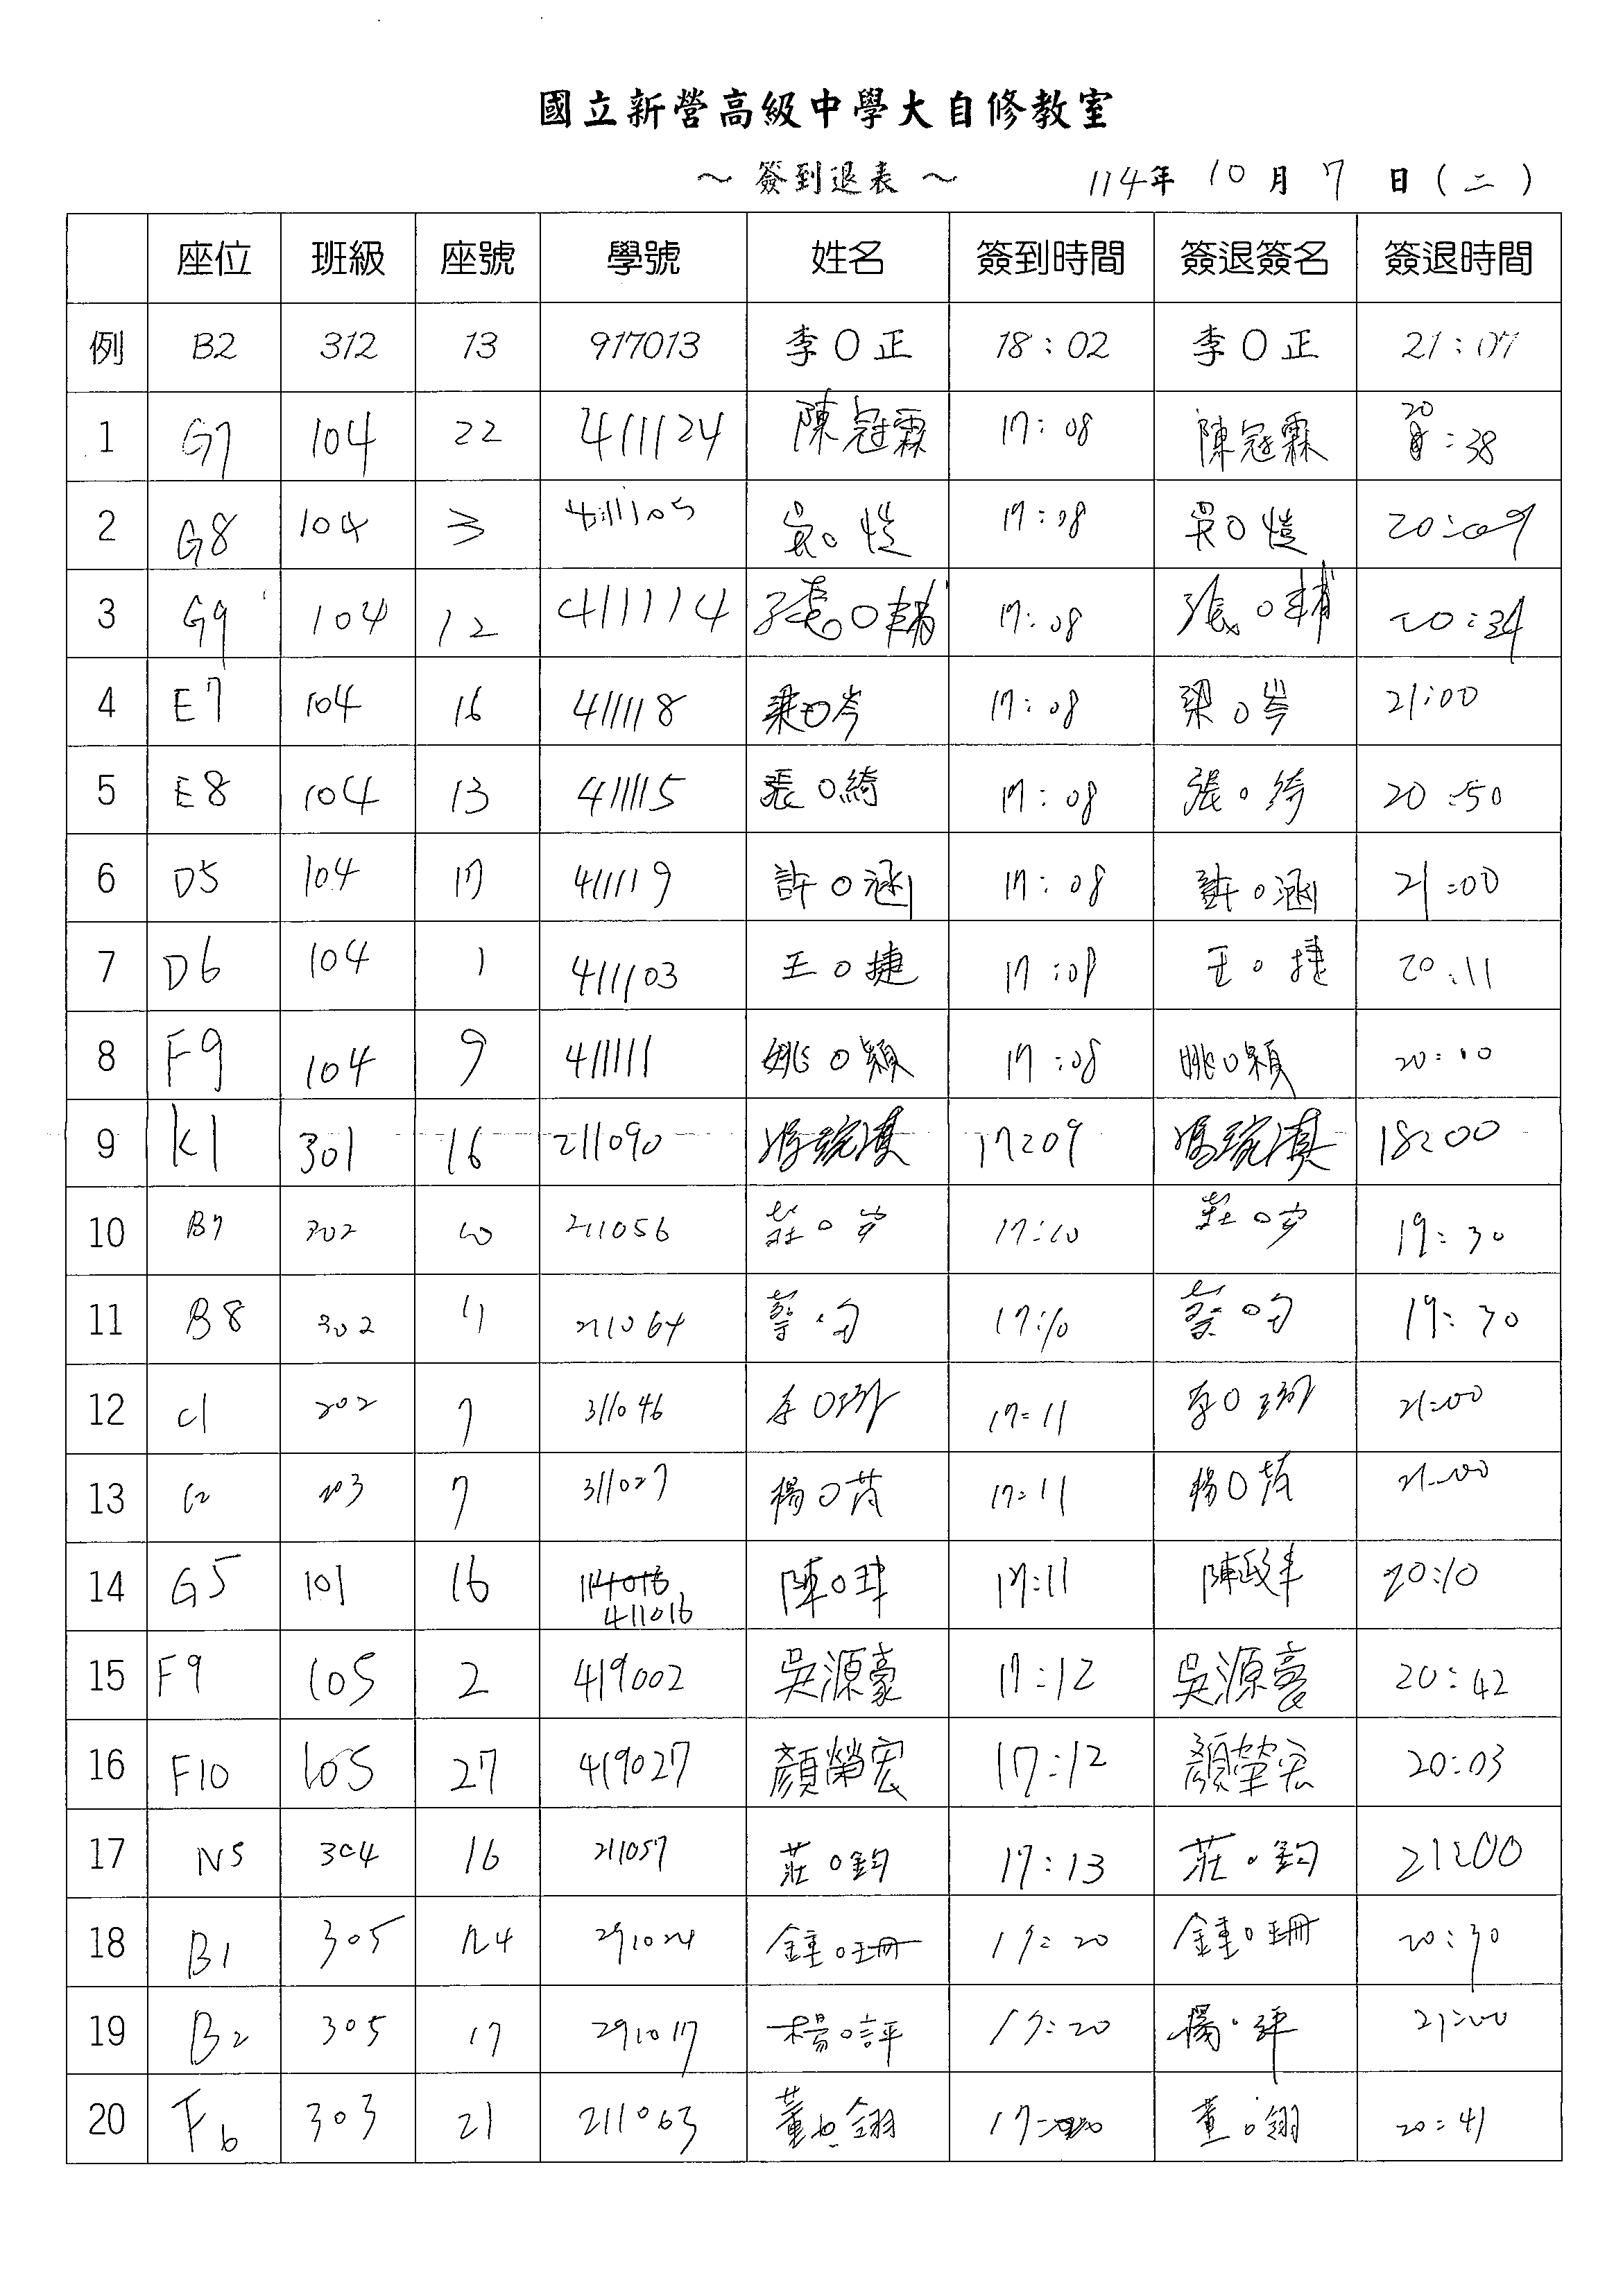 國立新營高級中學大自修教室
～ 簽到退表 ～ 114年 10 月 7 日 ( 二 )
座位 班級 座號 學號 姓名 簽到時間 簽退簽名 簽退時間
例 B2 312 13 917013 李O正 18:02 李O正 21:07
1 G7 104 22 411124 陳冠霖 17:08 陳冠霖 20:38
2 G8 104 3 411105 吳O愷 17:08 吳O愷 20:09
3 G9 104 12 411114 張O輔 17:08 張O輔 20:34
4 E7 104 16 411118 梁O岑 17:08 梁O岑 21:00
5 E8 104 13 411115 張O綺 17:08 張O綺 20:50
6 D5 104 17 411119 許O涵 17:08 許O涵 21:00
7 D6 104 1 411103 王O捷 17:08 王O捷 20:11
8 F9 104 9 411111 姚O穎 17:08 姚O穎 20:10
9 K1 301 16 211090 17:09 18:00
10 B7 302 10 211056 莊O岁 17:10 莊O岁 19:30
11 B8 302 211064 蔡O匀 17:10 蔡O匀 19:30
12 C1 202 7 311046 李O 17:11 李O 21:00
13 C2 203 7 311027 楊O芮 17:11 楊O芮 21:00
14 G5 101 16 411016 陳O瑋 17:11 陳政丰 20:10
15 F9 105 2 419002 吳源豪 17:12 吳源豪 20:42
16 F10 105 27 419027 顏榮宏 17:12 顏榮宏 20:03
17 N5 304 16 211057 莊O鈞 17:13 莊O鈞 21:00
18 B1 305 24 291024 鍾O珊 17:20 鍾O珊 20:30
19 B2 305 17 291017 楊O評 17:20 楊O評 21:00
20 F6 303 21 211063 董O翎 17:20 董O翎 20:41